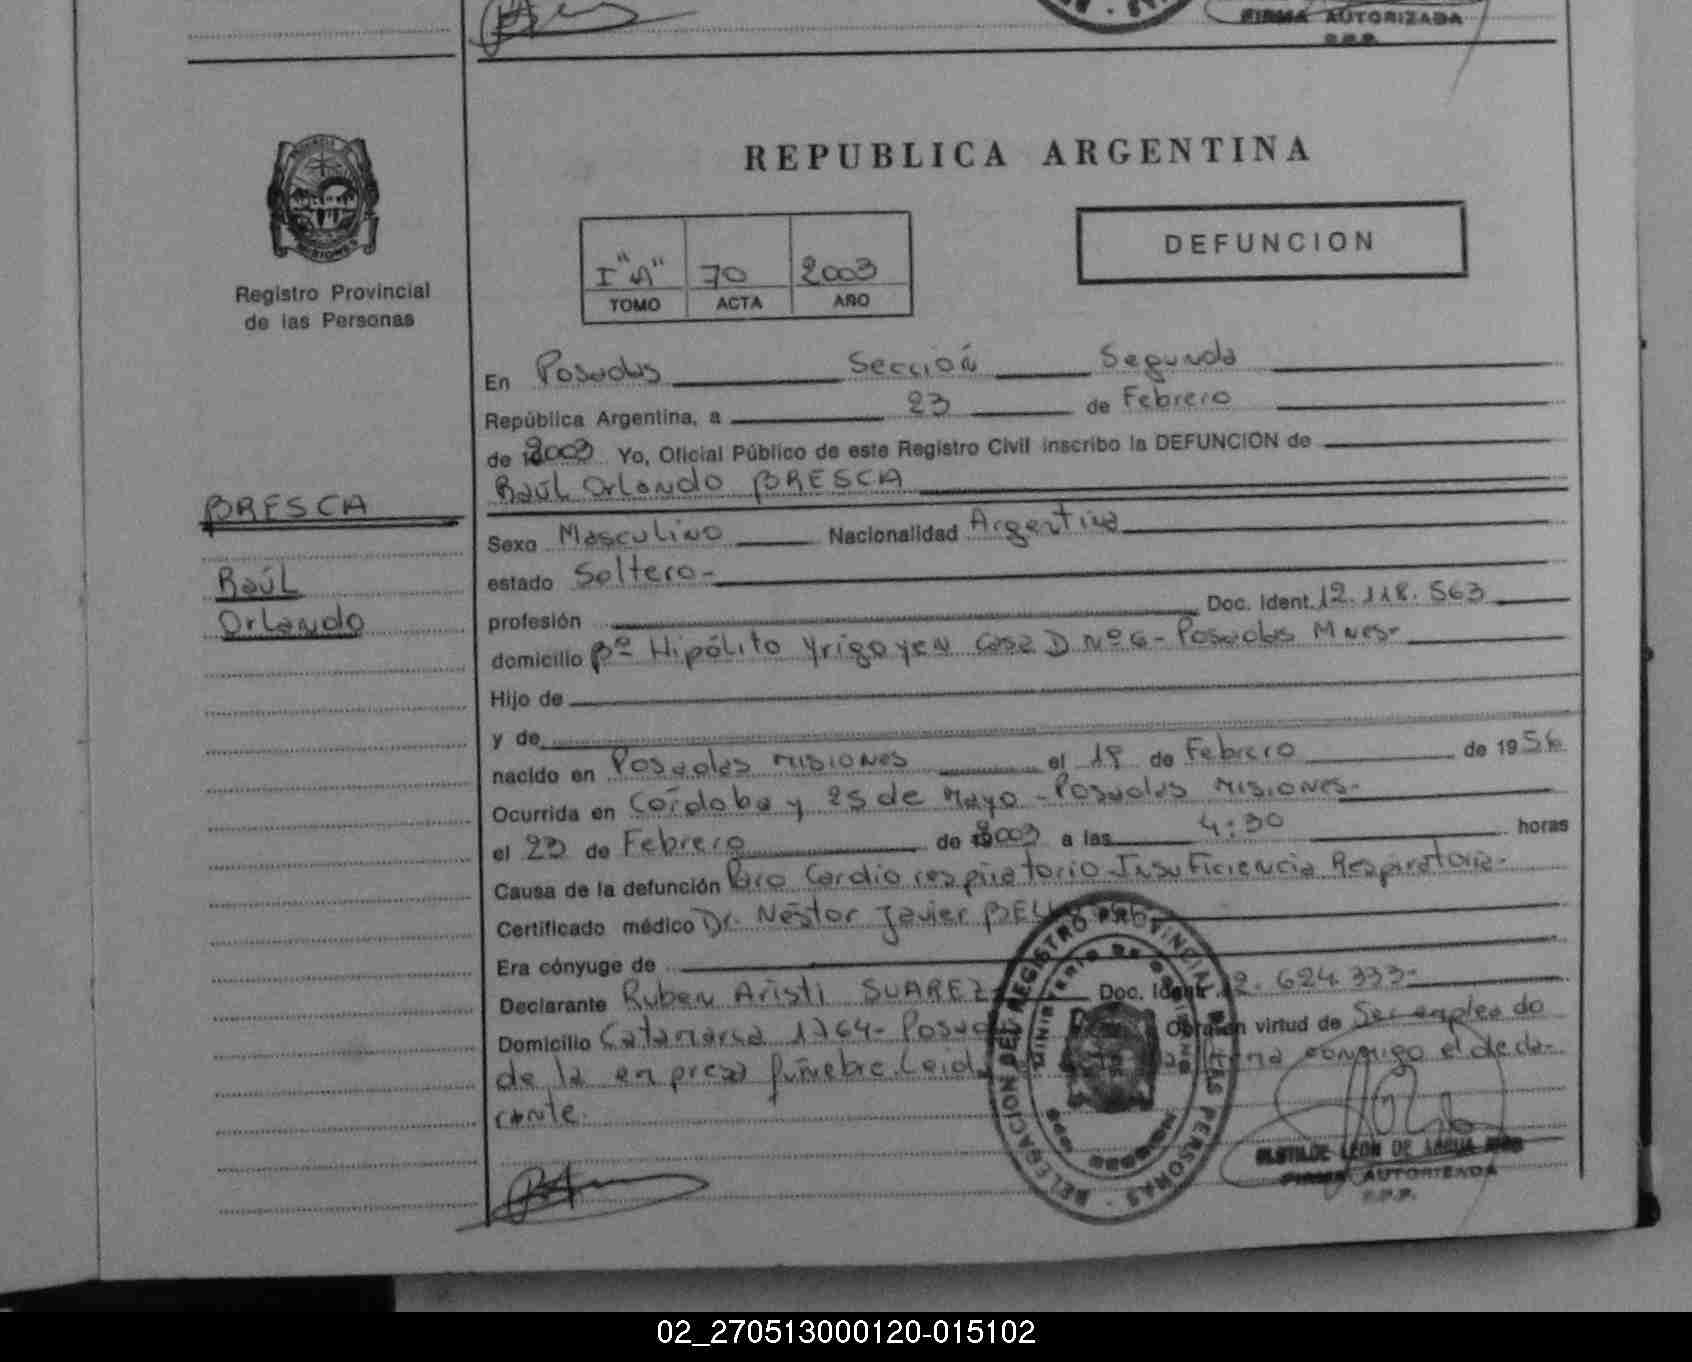 FIRMA AUTORIZADA
R.P.P.
REPUBLICA ARGENTINA
Registro Provincial
de las Personas
I "A" 70 2003
TOMO ACTA AÑO
DEFUNCION
En Posadas Sección Segunda
República Argentina, a 23 de Febrero
de 2003 Yo, Oficial Público de este Registro Civil inscribo la DEFUNCION de
Raúl Orlando BRESCA
BRESCA
Raúl
Orlando
Sexo Masculino Nacionalidad Argentina
estado Soltero-
profesión Doc. Ident. 12.118.563
domicilio Bº Hipólito Yrigoyen Casa D Nº 6- Posadas Mnes-
Hijo de
y de
nacido en Posadas Misiones el 18 de Febrero de 1956
Ocurrida en Córdoba y 25 de Mayo - Posadas Misiones-
el 23 de Febrero de 2003 a las 4:30 horas
Causa de la defunción Paro Cardio respiratorio-Insuficiencia Respiratoria-
Certificado médico Dr. Néstor Javier
Era cónyuge de
Declarante Ruben Aristi SUAREZ Doc. Ident. 2.624.333-
Domicilio Catamarca 1764- Obra en virtud de Ser empleado
de la empresa fúnebre. Leid firma conmigo el decla-
rante.
DELEGACION DEL REGISTRO PROVINCIAL DE LAS PERSONAS
MINISTERIO DE GOBIERNO
CLOTILDE LEON DE
FIRMA AUTORIZADA
R.P.P.
02_270513000120-015102